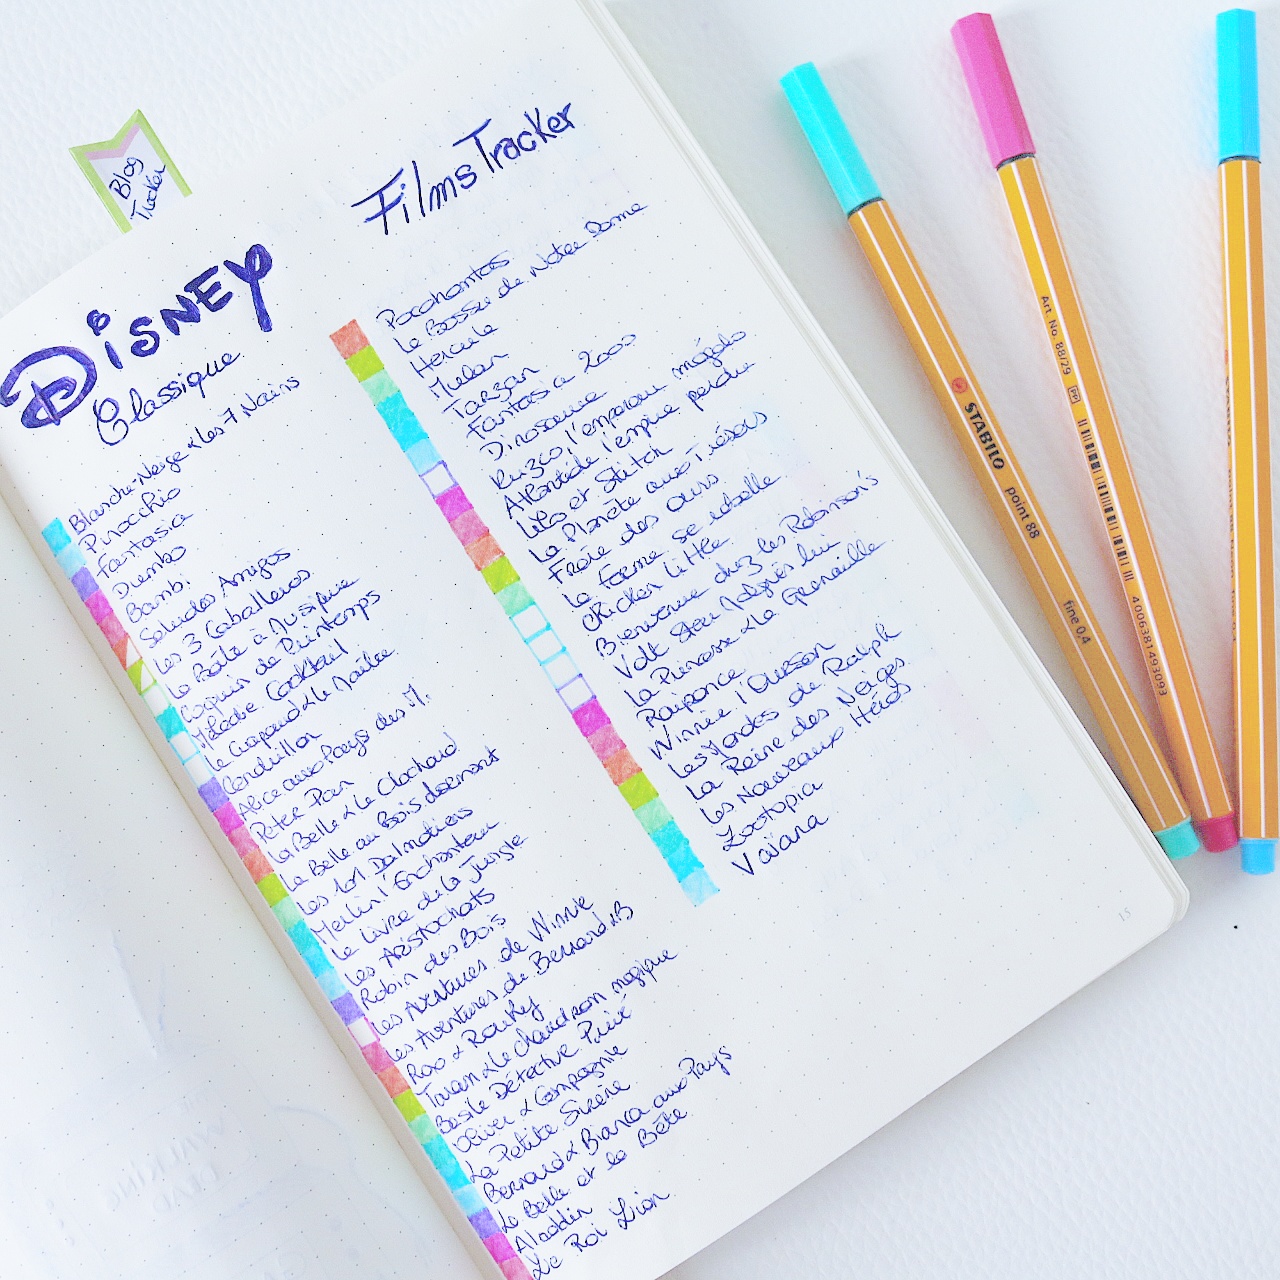 Blog
Tracker
Disney
Classique
Films Tracker
Blanche-Neige & les 7 Nains
Pinocchio
Fantasia
Dumbo
Bambi
Saludos Amigos
Les 3 Caballeros
La Boîte à Musique
Coquin de Printemps
Mélodie Cocktail
Le Crapaud & le Maître
Cendrillon
Alice aux Pays des M.
Peter Pan
La Belle & le Clochard
La Belle au Bois dormant
Les 101 Dalmatiens
Merlin l'Enchanteur
Le Livre de la Jungle
Les Aristochats
Robin des Bois
Les Aventures de Winnie
Les Aventures de Bernard & B
Rox & Rouky
Taram & le chaudron magique
Basile Détective Privé
Oliver & Compagnie
La Petite Sirène
Bernard & Bianca aux Pays
La Belle et la Bête
Aladdin
Le Roi Lion
Pocahontas
Le Bossu de Notre Dame
Hercule
Mulan
Tarzan
Fantasia 2000
Dinosaure
Kuzco l'empereur mégalo
Atlantide l'empire perdu
Lilo et Stitch
La Planète aux Trésors
Frère des Ours
La ferme se rebelle
Chicken Little
Bienvenue chez les Robinson's
Volt Star Malgrès lui
La Princesse & la Grenouille
Raiponce
Winnie l'Ourson
Les Mondes de Ralph
La Reine des Neiges
Les Nouveaux Héros
Zootopia
Vaïana
15
STABILO point 88 fine 0.4
Art. No. 88/29 PP 4006381493093